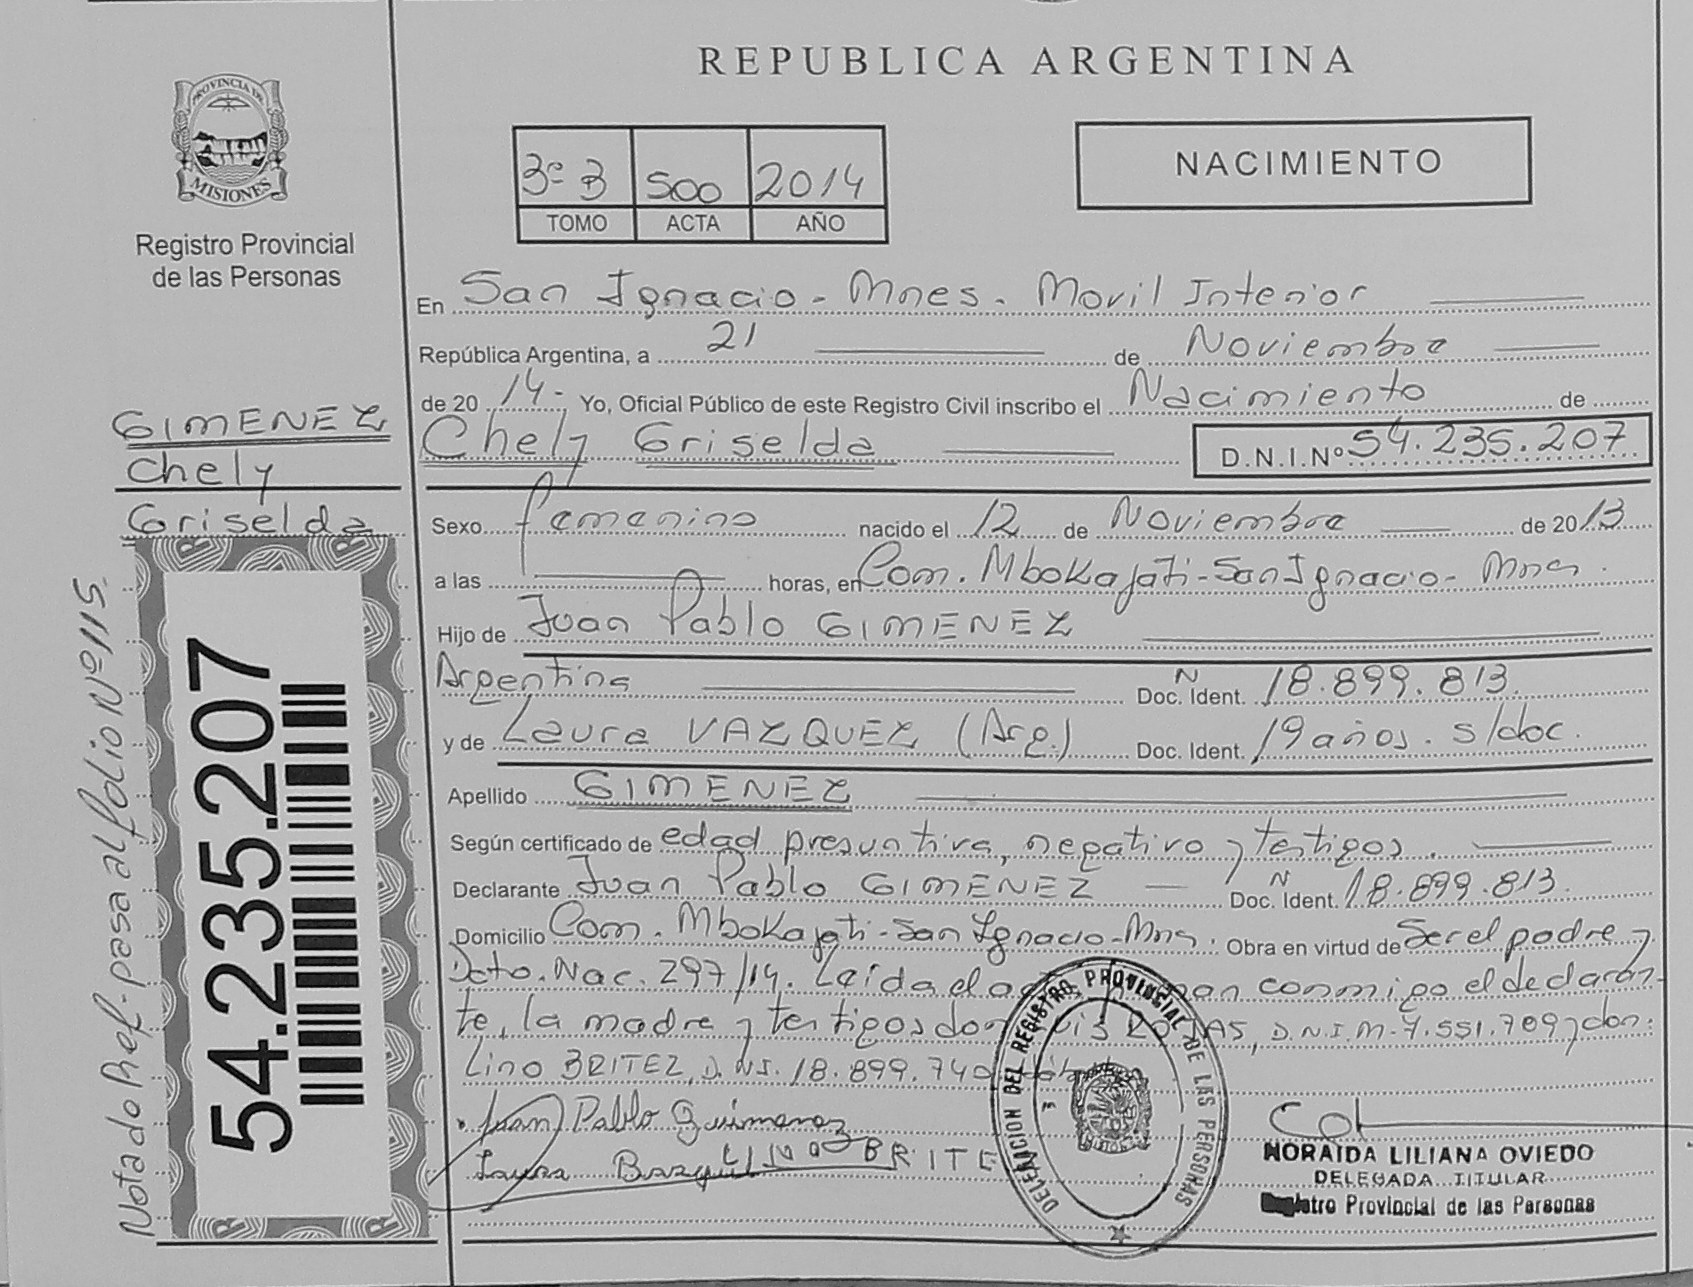 REPUBLICA ARGENTINA
PROVINCIA DE
MISIONES
Registro Provincial
de las Personas
3º B 500 2014
TOMO ACTA AÑO
NACIMIENTO
En San Ignacio - Mnes. Movil Interior
República Argentina, a 21 de Noviembre
de 20 14- Yo, Oficial Público de este Registro Civil inscribo el Nacimiento de
Chely Griselda D.N.I.Nº 54.235.207
GIMENEZ
Chely
Griselda
Sexo femenino nacido el 12 de Noviembre de 2013
a las horas, en Com. Mbokajati - San Ignacio - Mnes.
Hijo de Juan Pablo GIMENEZ
Argentina Doc. Ident. N 18.899.813.
y de Laura VAZQUEZ (Arg.) Doc. Ident. 19 años. s/doc.
Apellido GIMENEZ
Según certificado de edad presuntiva, negativo y testigos.
Declarante Juan Pablo GIMENEZ — Doc. Ident. N 18.899.813.
Domicilio Com. Mbokajati - San Ignacio - Mns. Obra en virtud de Ser el padre y
Dcto. Nac. 297/14. Leída el conmigo el declaran-
te, la madre y testigos don D.N.I.M- 7.551.709 y don:
Lino BRITEZ, D.N.I. 18.899.740
Juan Pablo Guimenez
Laura LINO BRITE
DELEGACION DEL REGISTRO PROVINCIAL DE LAS PERSONAS
NORAIDA LILIANA OVIEDO
DELEGADA TITULAR
Registro Provincial de las Personas
54.235.207
Nota de Ref. pasa al folio Nº 115.